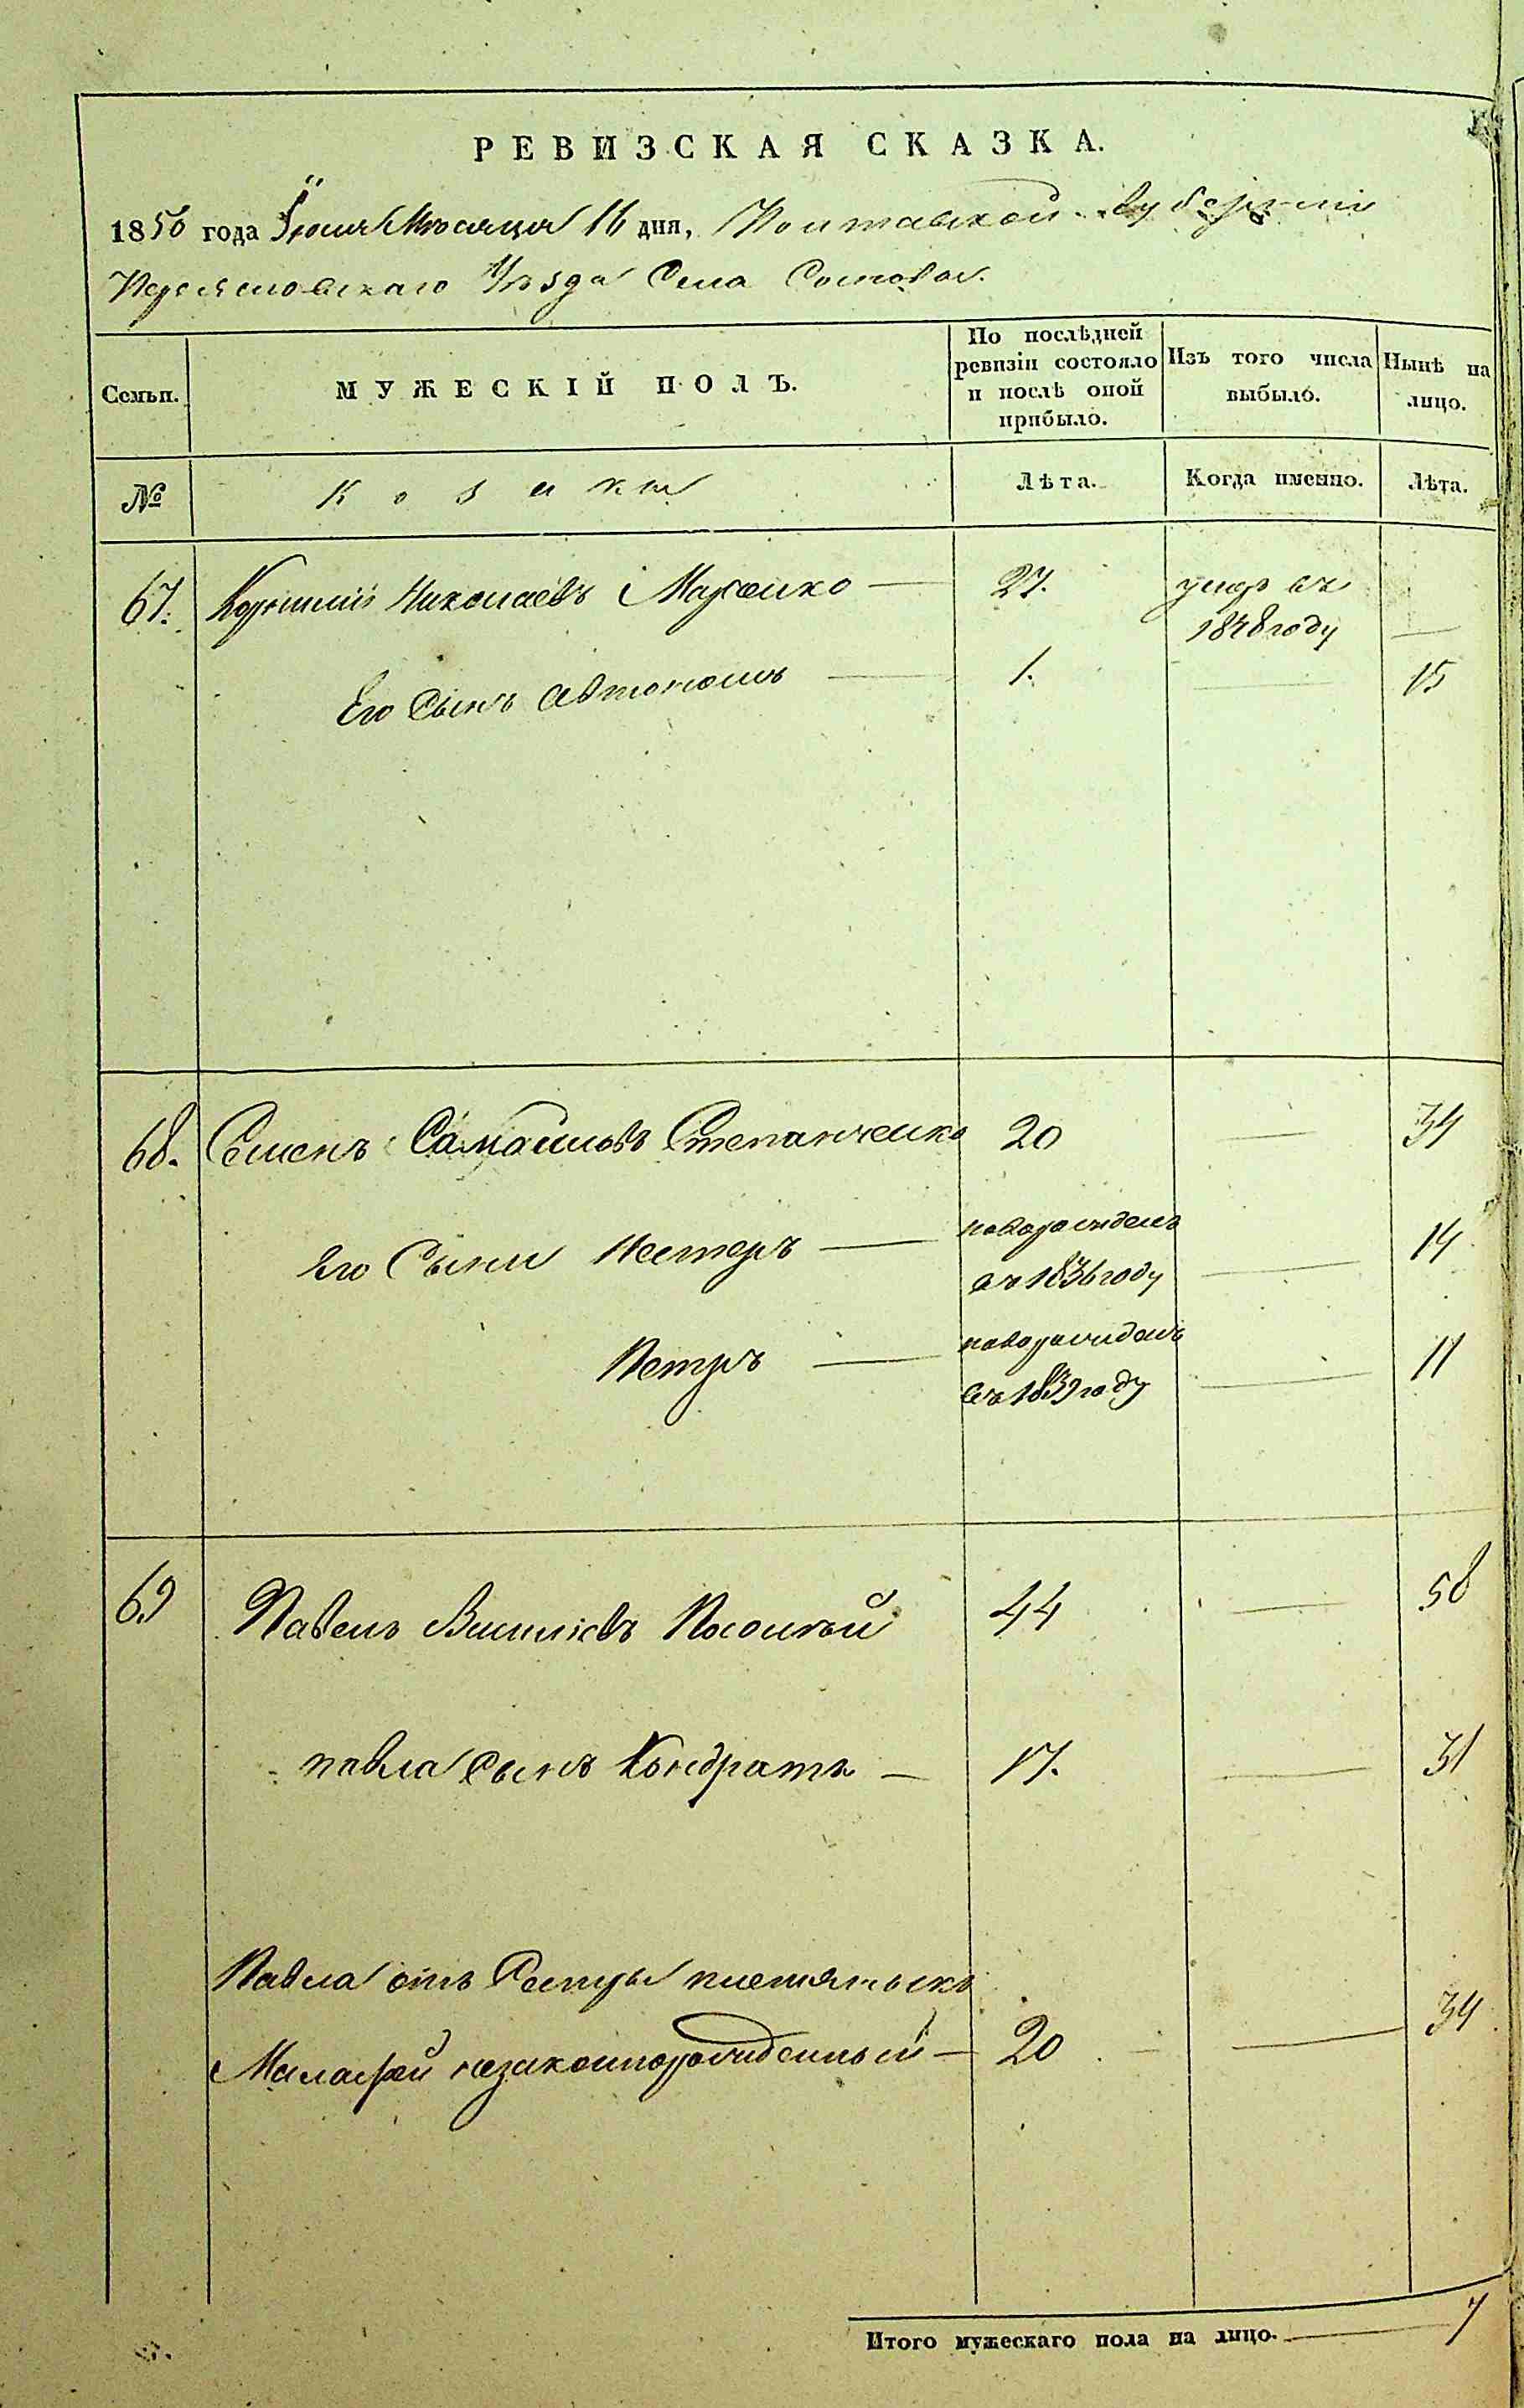 РЕВИЗСКАЯ СКАЗКА.
1850 года Іюля Мѣсяца 16 дня, Полтавской Губерніи
Переясловскаго Уѣзда Села Сомовки.
Семьи. МУЖЕСКІЙ ПОЛЪ. По послѣдней ревизіи состояло и послѣ оной прибыло. Изъ того числа выбыло. Нынѣ на лицо.
№ Козаки Лѣта. Когда именно. Лѣта.
67. Корнилій Николаевъ Марченко — 27. умер въ
1848 году —
Его Сынъ Автономъ — 1. — 15
68. Семенъ Самойловъ Степанченко 20 — 34
Его Сыни Нестеръ — новорожденъ — 14
въ 1836 году
Петръ — новорожденъ — 11
въ 1839 году
69 Павелъ Василіевъ Носочный 44 — 58
павла Сынъ Кондратъ — 17. — 31
Павла отъ Сестры племянныкъ
Малафей незаконнорожденный — 20 — 34
Итого мужескаго пола на лицо. — 7